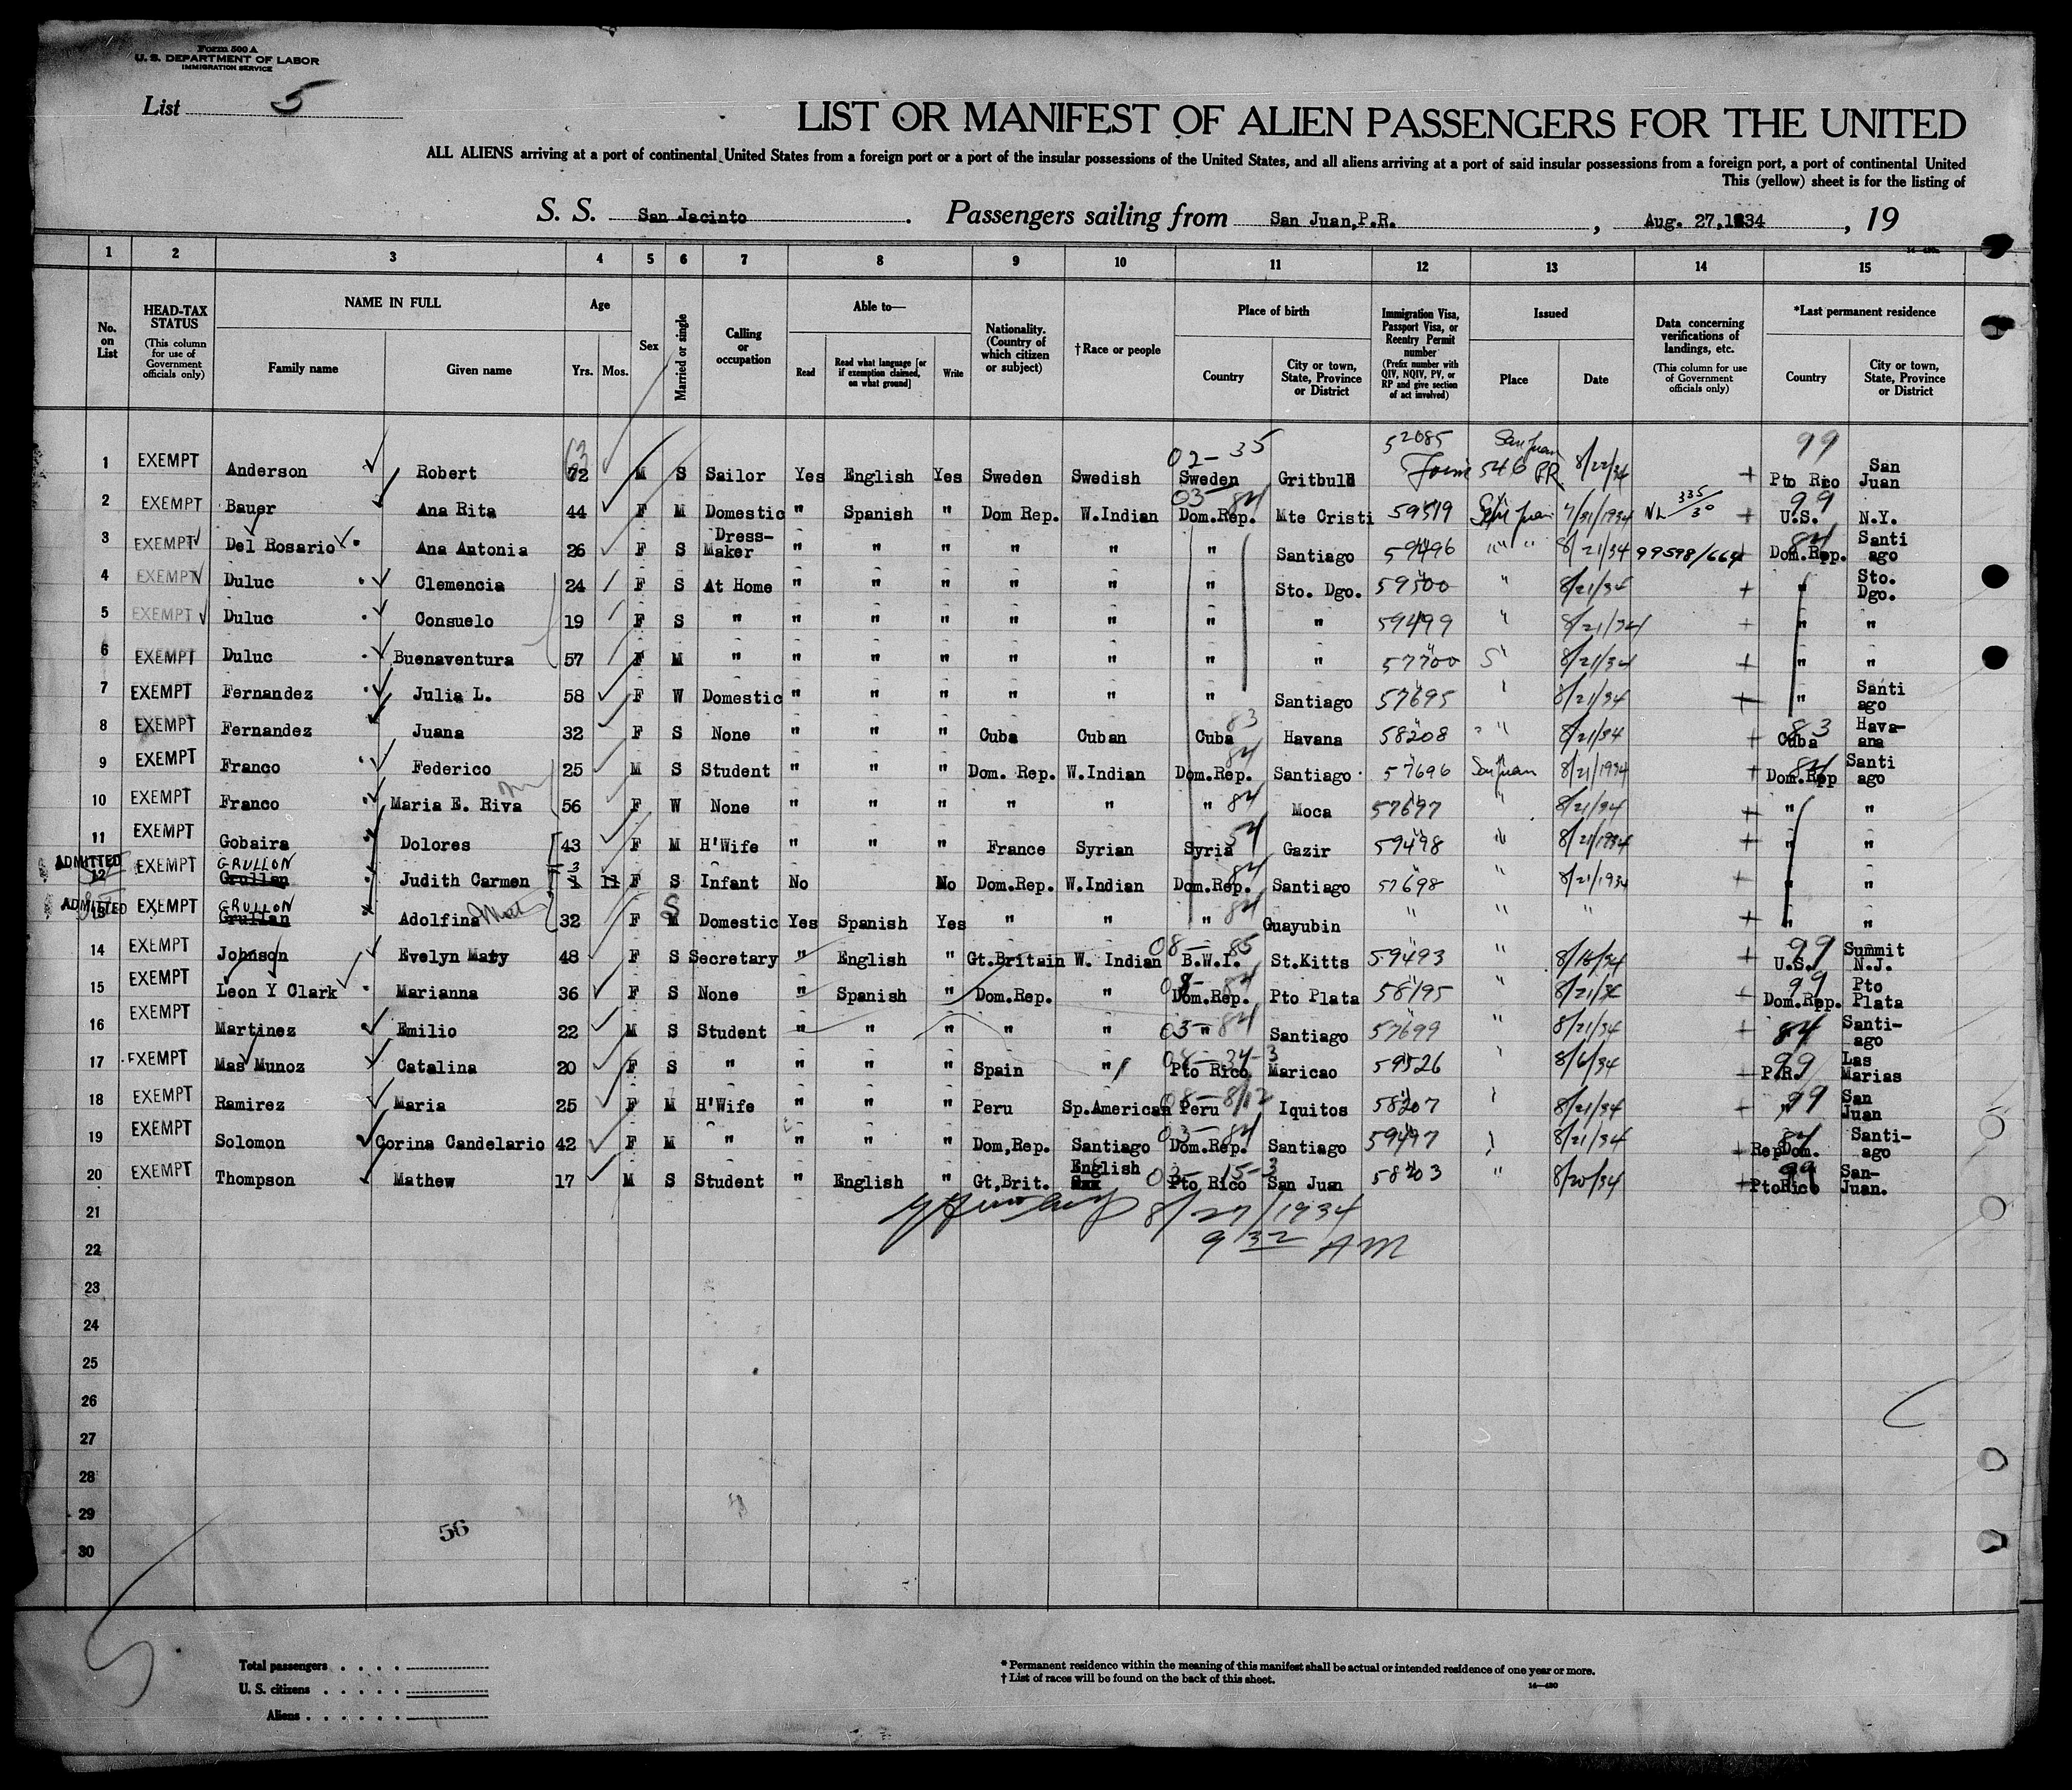 Form 500 A
U. S. DEPARTMENT OF LABOR
IMMIGRATION SERVICE
List 5
LIST OR MANIFEST OF ALIEN PASSENGERS FOR THE UNITED
ALL ALIENS arriving at a port of continental United States from a foreign port or a port of the insular possessions of the United States, and all aliens arriving at a port of said insular possessions from a foreign port, a port of continental United
This (yellow) sheet is for the listing of
S. S. San Jacinto. Passengers sailing from San Juan,P.R., Aug. 27,1934, 19
1 2 3 4 5 6 7 8 9 10 11 12 13 14 15
No. on List
HEAD-TAX STATUS
(This column for use of Government officials only)
NAME IN FULL
Family name
Given name
Age
Yrs. Mos.
Sex
Married or single
Calling or occupation
Able to—
Read
Read what language [or if exemption claimed, on what ground]
Write
Nationality. (Country of which citizen or subject)
†Race or people
Place of birth
Country
City or town, State, Province or District
Immigration Visa, Passport Visa, or Reentry Permit number
(Prefix number with QIV, NQIV, PV, or RP and give section of act involved)
Issued
Place
Date
Data concerning verifications of landings, etc.
(This column for use of Government officials only)
*Last permanent residence
Country
City or town, State, Province or District
1 EXEMPT Anderson Robert 72 63 M S Sailor Yes English Yes Sweden Swedish 02-35 Sweden Gritbuld 52085 Form 546 San Juan PR 8/22/34 + 99 Pto Rico San Juan
2 EXEMPT Bauer Ana Rita 44 F M Domestic " Spanish " Dom Rep. W.Indian 03 84 Dom.Rep. Mte Cristi 59519 San Juan 7/31/1934 NL 335/30 + 99 U.S. N.Y.
3 EXEMPT Del Rosario Ana Antonia 26 F S Dress-Maker " " " " " " Santiago 59496 " " 8/21/34 99598/664 84 Dom.Rep. Santiago
4 EXEMPT Duluc Clemencia 24 F S At Home " " " " " " Sto. Dgo. 59500 " 8/21/34 + " Sto. Dgo.
5 EXEMPT Duluc Consuelo 19 F S " " " " " " " " 59499 " 8/21/34 + " "
6 EXEMPT Duluc Buenaventura 57 F M " " " " " " " " 57700 " 8/21/34 + " "
7 EXEMPT Fernandez Julia L. 58 F W Domestic " " " " " " Santiago 57695 " 8/21/34 + " Santiago
8 EXEMPT Fernandez Juana 32 F S None " " " Cuba Cuban 83 Cuba Havana 58208 " " 8/21/34 + 83 Cuba Havana
9 EXEMPT Franco Federico 25 M S Student " " " Dom. Rep. W.Indian 84 Dom.Rep. Santiago 57696 San Juan 8/21/1934 + 84 Dom.Rep Santiago
10 EXEMPT Franco Maria E. Riva 56 F W None " " " " " " 84 Moca 57697 " 8/21/34 + " "
11 EXEMPT Gobaira Dolores 43 F M H'Wife " " " France Syrian 54 Syria Gazir 59498 " 8/21/1934 + " "
ADMITTED 12 EXEMPT GRULLON Grullan Judith Carmen 3 1 11 F S Infant No No Dom.Rep. W.Indian 84 Dom.Rep. Santiago 57698 8/21/1934 + " "
ADMITTED 13 EXEMPT GRULLON Grullan Adolfina 32 F S M Domestic Yes Spanish Yes " " " 84 Guayubin " " " + " "
14 EXEMPT Johnson Evelyn Mary 48 F S Secretary " English " Gt.Britain W. Indian 08-85 B.W.I. St.Kitts 59493 " 8/18/34 + 99 U.S. Summit N.J.
15 EXEMPT Leon Y Clark Marianna 36 F S None " Spanish " Dom.Rep. " 84 Dom.Rep. Pto Plata 58195 " 8/21/34 + 99 Dom.Rep. Pto Plata
16 EXEMPT Martinez Emilio 22 M S Student " " " " " 03-84 " Santiago 57699 " 8/21/34 + 84 Santi-ago
17 EXEMPT Mas Munoz Catalina 20 F S " " " " Spain " 08-34-3 Pto Rico Maricao 59526 " 8/6/34 99 P.R. Las Marias
18 EXEMPT Ramirez Maria 25 F M H'Wife " " " Peru Sp.American Peru Iquitos 58207 8/21/34 + 99 " San Juan
19 EXEMPT Solomon Corina Candelario 42 F M " " " " Dom,Rep. Santiago 03-84 Dom.Rep. Santiago 59497 8/21/34 + 84 RepDom. Santi-ago
20 EXEMPT Thompson Mathew 17 M S Student " English " Gt,Brit. English 03-15-3 Pto Rico San Juan 58203 " 8/20/34 + 99 PtoRico San-Juan.
21 8/27/1934
22 9 32 AM
23
24
25
26
27
28
29
30
56
Total passengers
U. S. citizens
Aliens
* Permanent residence within the meaning of this manifest shall be actual or intended residence of one year or more.
† List of races will be found on the back of this sheet.
14—430